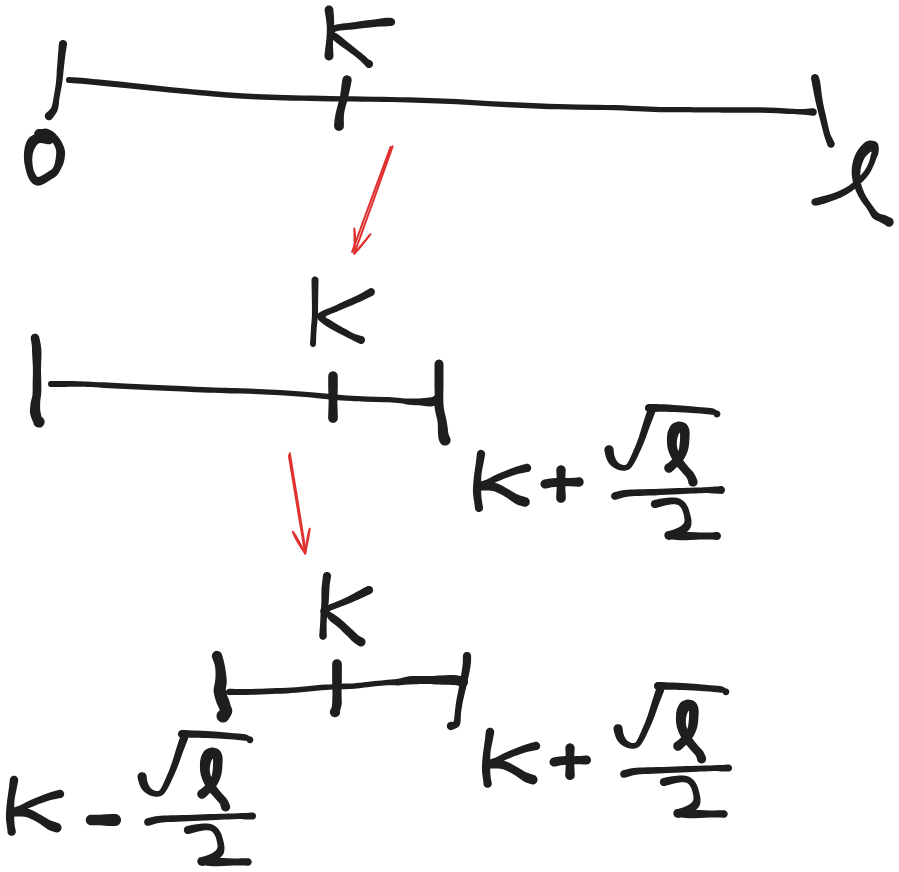 K
0 ℓ
K
K + √ℓ/2
K
K - √ℓ/2 K + √ℓ/2